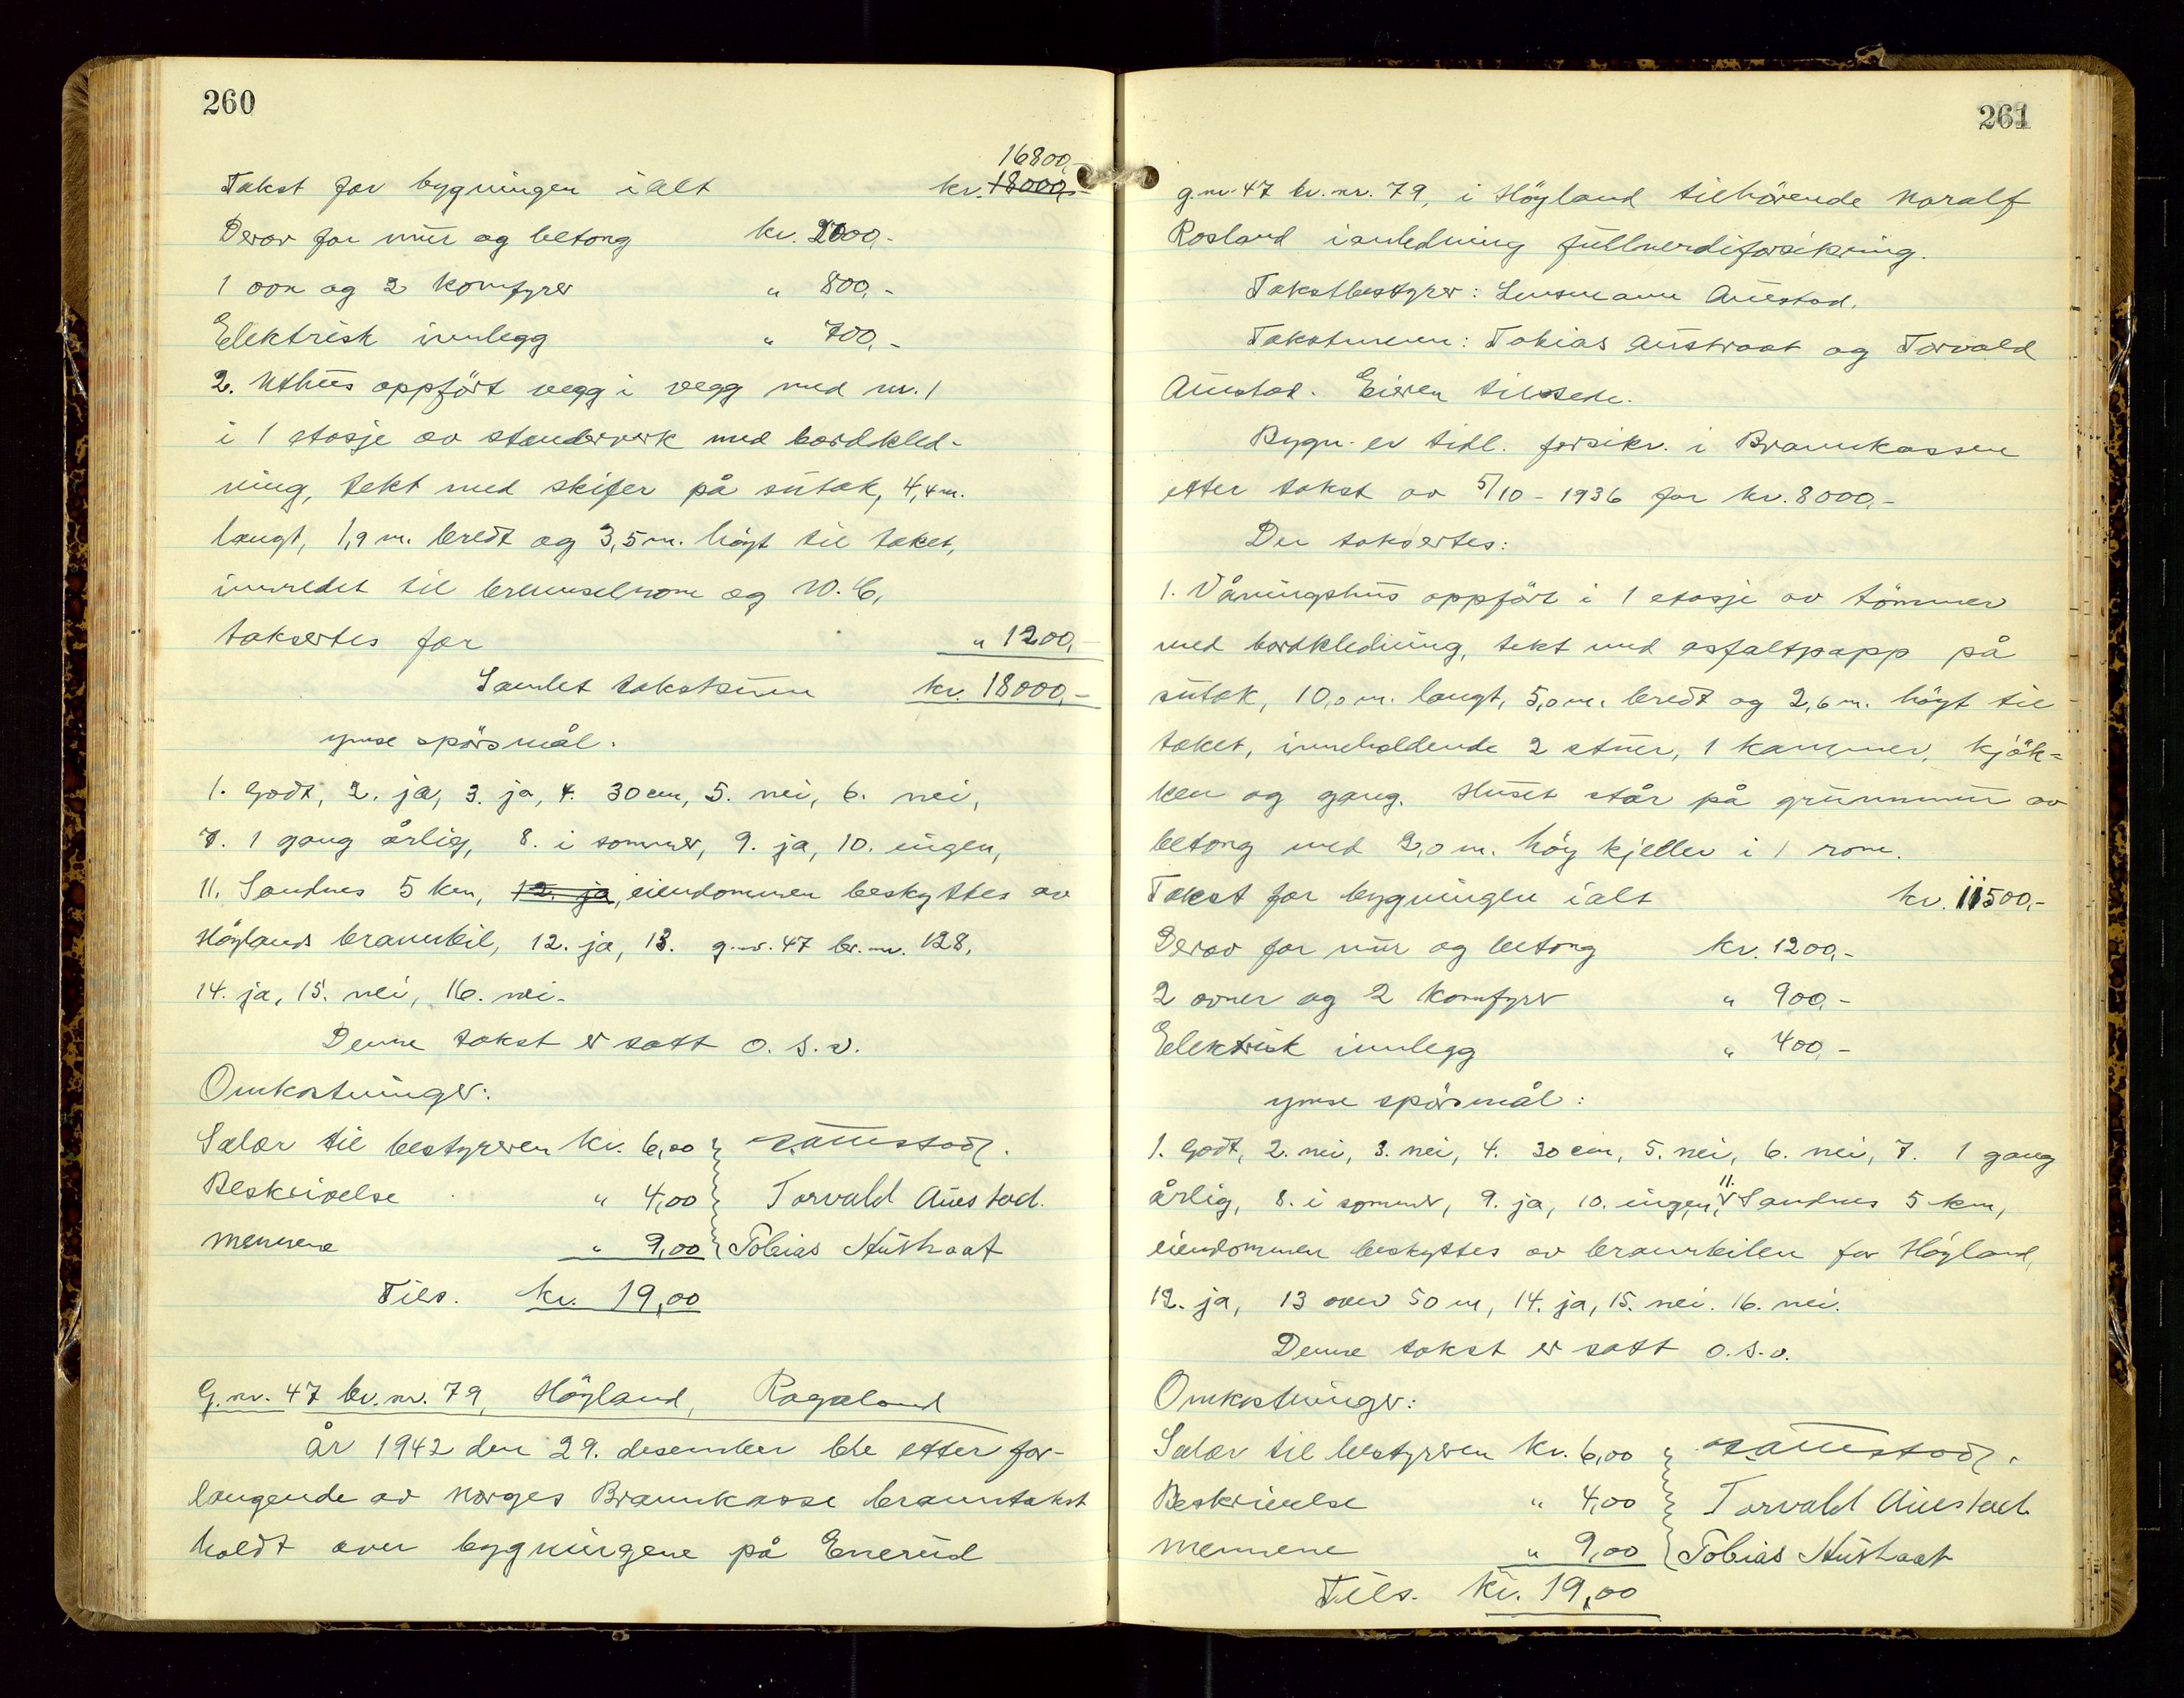 260
16800,-
Takst for bygningen ialt kr. 18000,-
Derav for mur og betong kr. 2000,-
1 ovn og 2 komfyrer " 800,-
Elektrisk innlegg " 700,-
2. Uthus oppført vegg i vegg med nr. 1
i 1 etasje av stenderverk med bordkled-
ning, tekt med skifer på sutak, 4,4 m.
langt, 1,9 m. bredt og 3,5 m. høyt til taket,
innredet til brenselrom og W.C,
taksertes for " 1200,-
Samlet takstsum kr. 18000,-
ymse spørsmål.
1. Godt, 2. ja, 3. ja, 4. 30 cm, 5. nei, 6. nei,
7. 1 gang årlig, 8. i sommer, 9. ja, 10. ingen,
11. Sandnes 5 km, 12. ja, eiendommen beskyttes av
Høylands brannbil, 12. ja, 13. g.nr. 47 br.nr. 128,
14. ja, 15. nei, 16. nei.
Denne takst er satt o. s. v.
Omkostninger:
Salær til bestyreren kr. 6,00 Auestad.
Beskrivelse " 4,00 Torvald Auestad.
Mennene " 9,00 Tobias Austraat
Tils. kr. 19,00
G.nr. 47 br.nr. 79, Høyland, Rogaland
År 1942 den 29. desember ble etter for-
langende av Norges Brannkasse branntakst
holdt over bygningene på Enerud
261
g.nr. 47 br.nr. 79, i Høyland tilhørende Noralf
Rosland ianledning fullverdiforsikring.
Takstbestyrer: Lensmann Auestad.
Takstmenn: Tobias Austraat og Torvald
Auestad. Eieren tilstede.
Bygn. er tidl. forsikr. i Brannkassen
etter takst av 5/10 - 1936 for kr. 8000,-
Der taksertes:
1. Våningshus oppført i 1 etasje av tømmer
med bordkledning, tekt med asfaltpapp på
sutak, 10,0 m. langt, 5,0 m. bredt og 2,6 m. høyt til
taket, inneholdende 2 stuer, 1 kammer, kjøk=
ken og gang. Huset står på grunnmur av
betong med 2,0 m. høy kjeller i 1 rom.
Takst for bygningen ialt kr. 11500,-
Derav for mur og betong kr. 1200,-
2 ovner og 2 komfyrer " 900,-
Elektrisk innlegg " 400,-
ymse spørsmål:
1. Godt, 2. nei, 3. nei, 4. 30 cm, 5. nei, 6. nei, 7. 1 gang
årlig, 8. i sommer, 9. ja, 10. ingen, 11. Sandnes 5 km,
eiendommen beskyttes av brannbilen for Høyland,
12. ja, 13 over 50 m, 14. ja, 15. nei. 16. nei.
Denne takst er satt o.s.v.
Omkostninger:
Salær til bestyreren kr. 6,00 Auestad.
Beskrivelse " 4,00 Torvald Auestad
Mennene " 9,00 Tobias Austraat
Tils. kr. 19,00